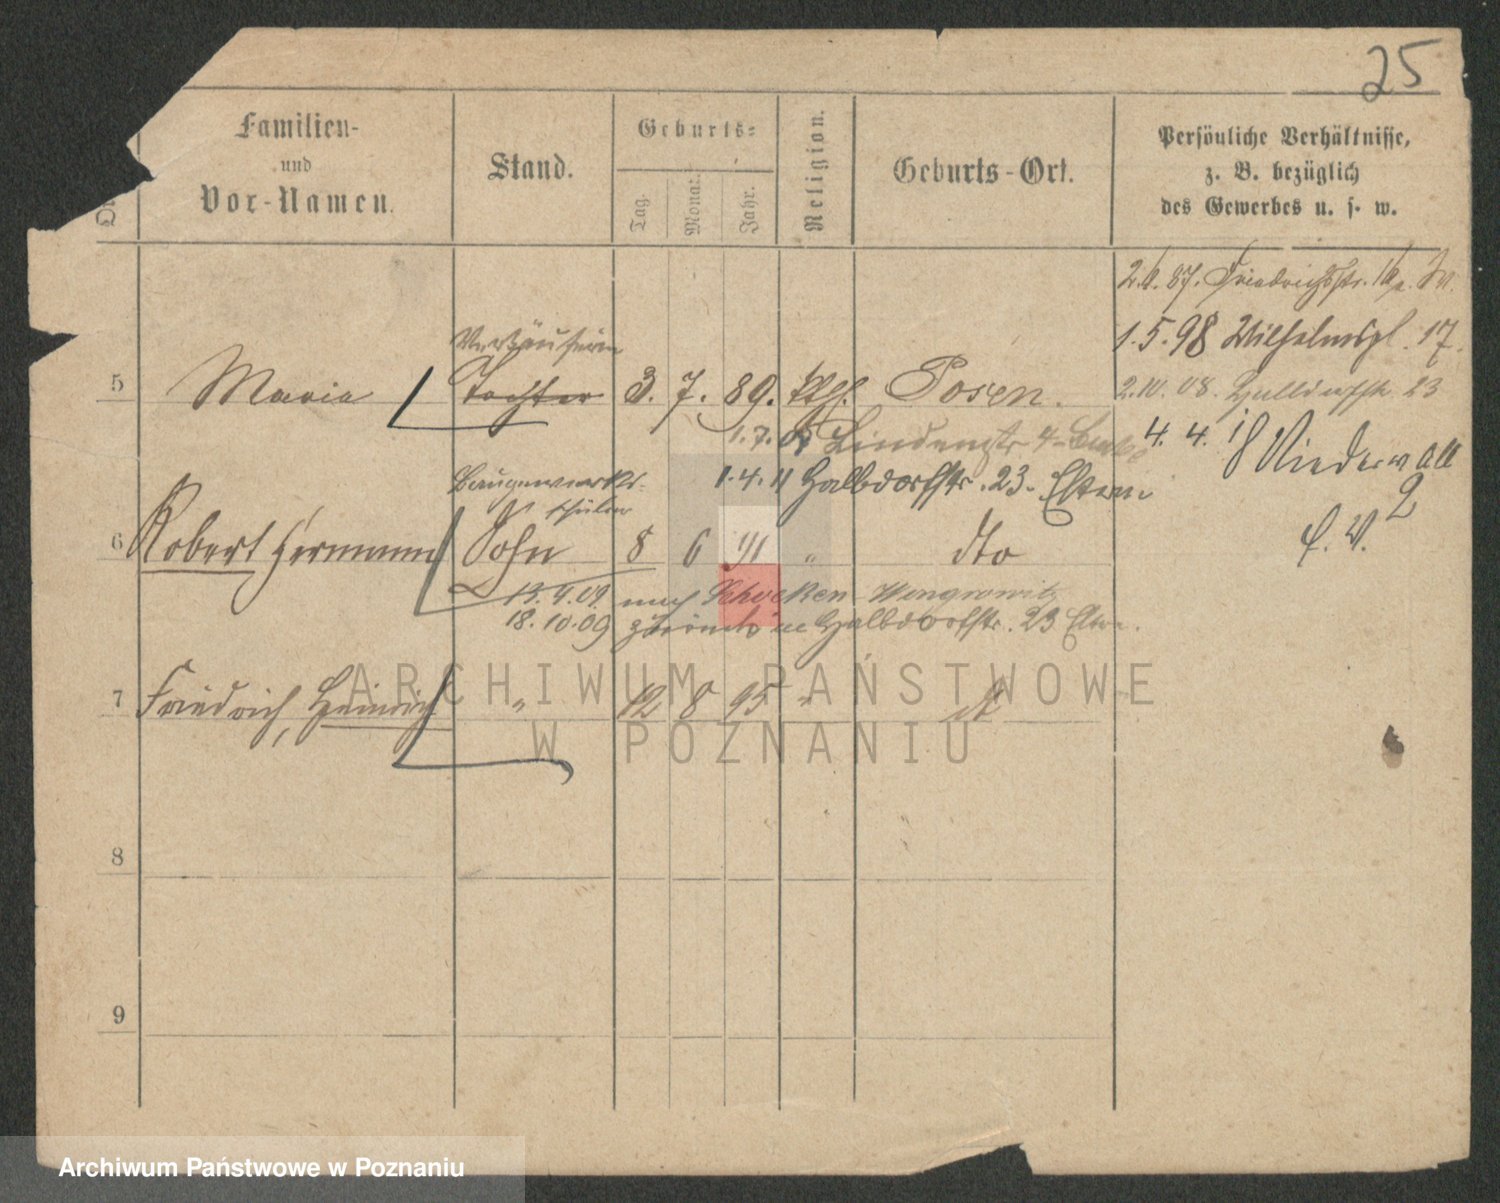 25
Familien-
und
Vor-Namen.
Stand.
Geburts-
Tag.
Monat.
Jahr.
Religion.
Geburts-Ort.
Persönliche Verhältnisse,
z. B. bezüglich
des Gewerbes u. s. w.
87. Friedrichstr.
1.5.98 Wilhelmspl. 17.
2.10.08. Halbdorfstr. 23
4. 4. 18 Niederwall
2
Verkäuferin
5 Maria Tochter 3. 7. 89. kth. Posen.
1.7. Lindenstr. 4
1.4.11 Halbdorfstr. 23. Eltern
Baugewerks-
schüler
6 Robert Hermann Sohn 8 6 91 " dto
13.9.09. nach Schocken Wongrowitz
18.10.09 zurück Halbdorfstr. 23 Eltern.
7 Friedrich, Heinrich " 12 8 95 "
8
9
ARCHIWUM PAŃSTWOWE
W POZNANIU
Archiwum Państwowe w Poznaniu